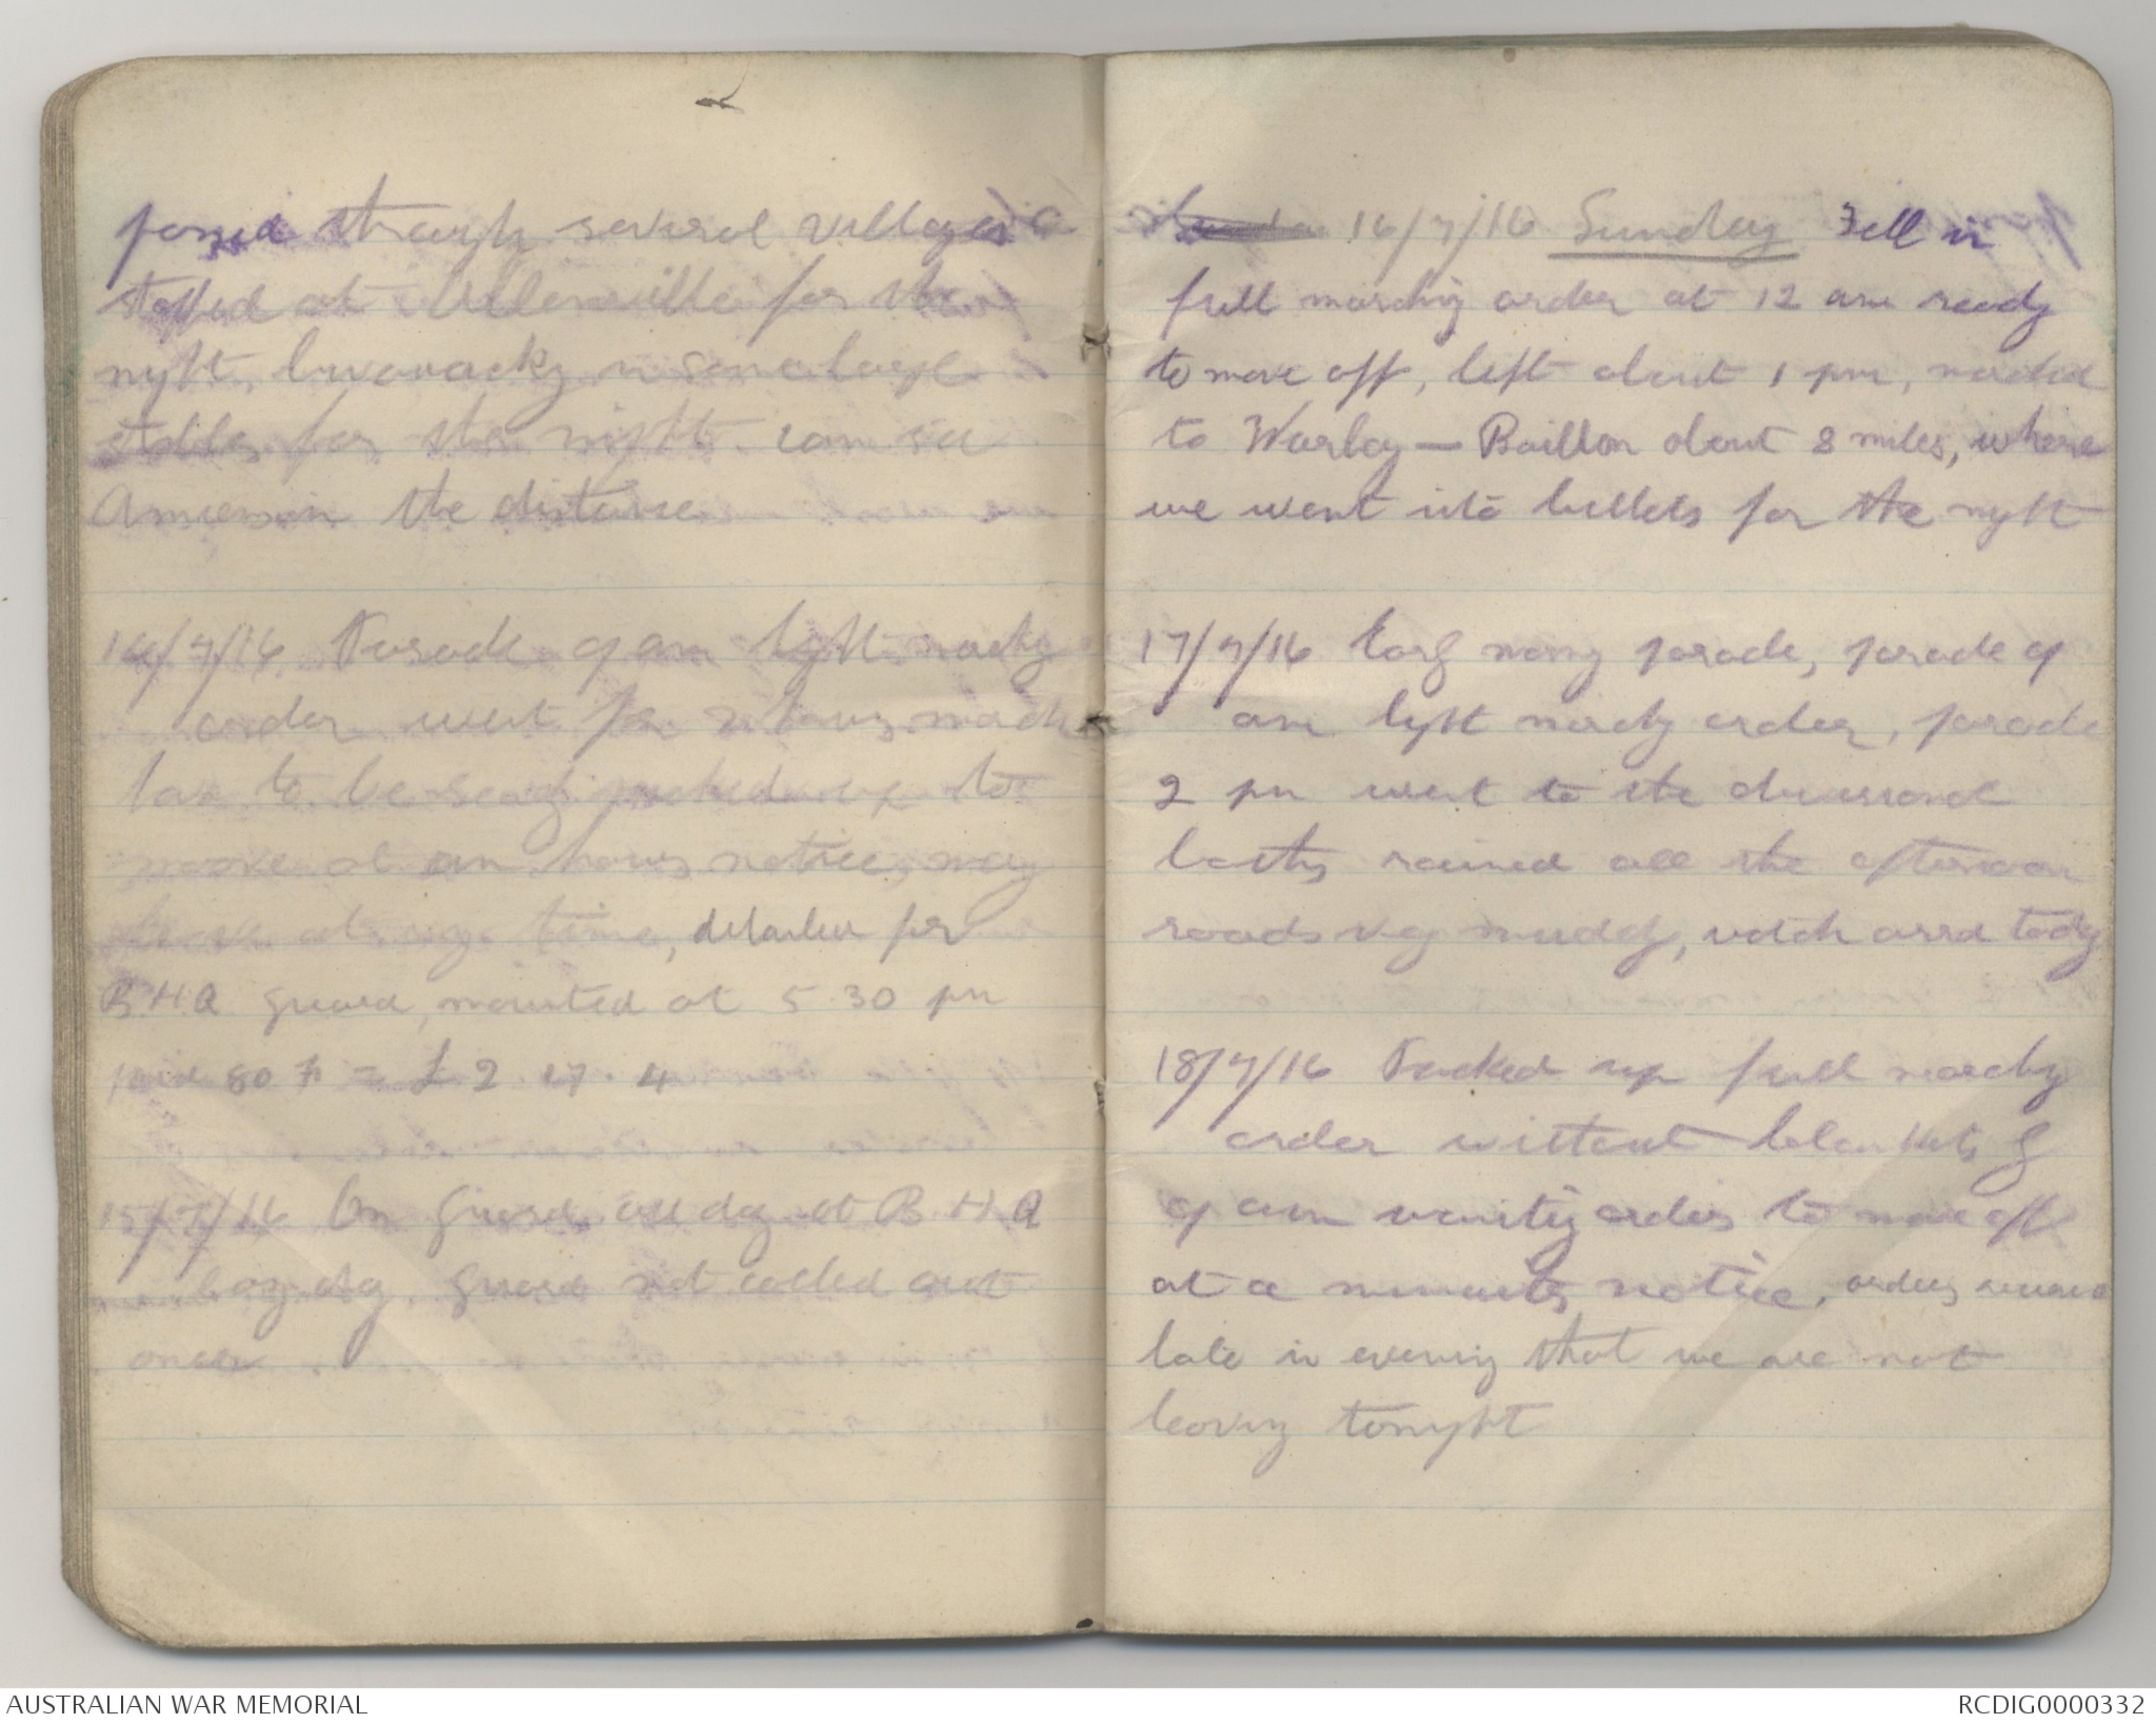 passed through several villages &
stopped at Allonville for the
night, bivouacky in some large
stables for the night. can see
Amiens in the distance
14/7/16 Parade 9 am light marchg
order went for 2 hours march
have to be ready packed up to
move at an hours notice, may
leave at any time, detailed for
B.H.Q guard, mounted at 5.30 pm
paid 80 F = £2.17.4
15/7/16 On guard all day at B H Q
day, guard not called out
once
16/7/16 Sunday Fell in
full marching order at 12 am ready
to move off, left about 1 pm, marched
to Warloy — Baillon about 8 miles, where
we went into billets for the night
17/7/16 Early morng parade, parade 9
am light marchg order, parade
2 pm went to the divisional
baths rained all the afternoon
roads vey muddy, watch arrd today
18/7/16 Packed up full marchg
order without blankets by
9 am waiting orders to move off
at a minutes notice, orders received
late in evening that we are not
leaving tonight
AUSTRALIAN WAR MEMORIAL
RCDIG0000332